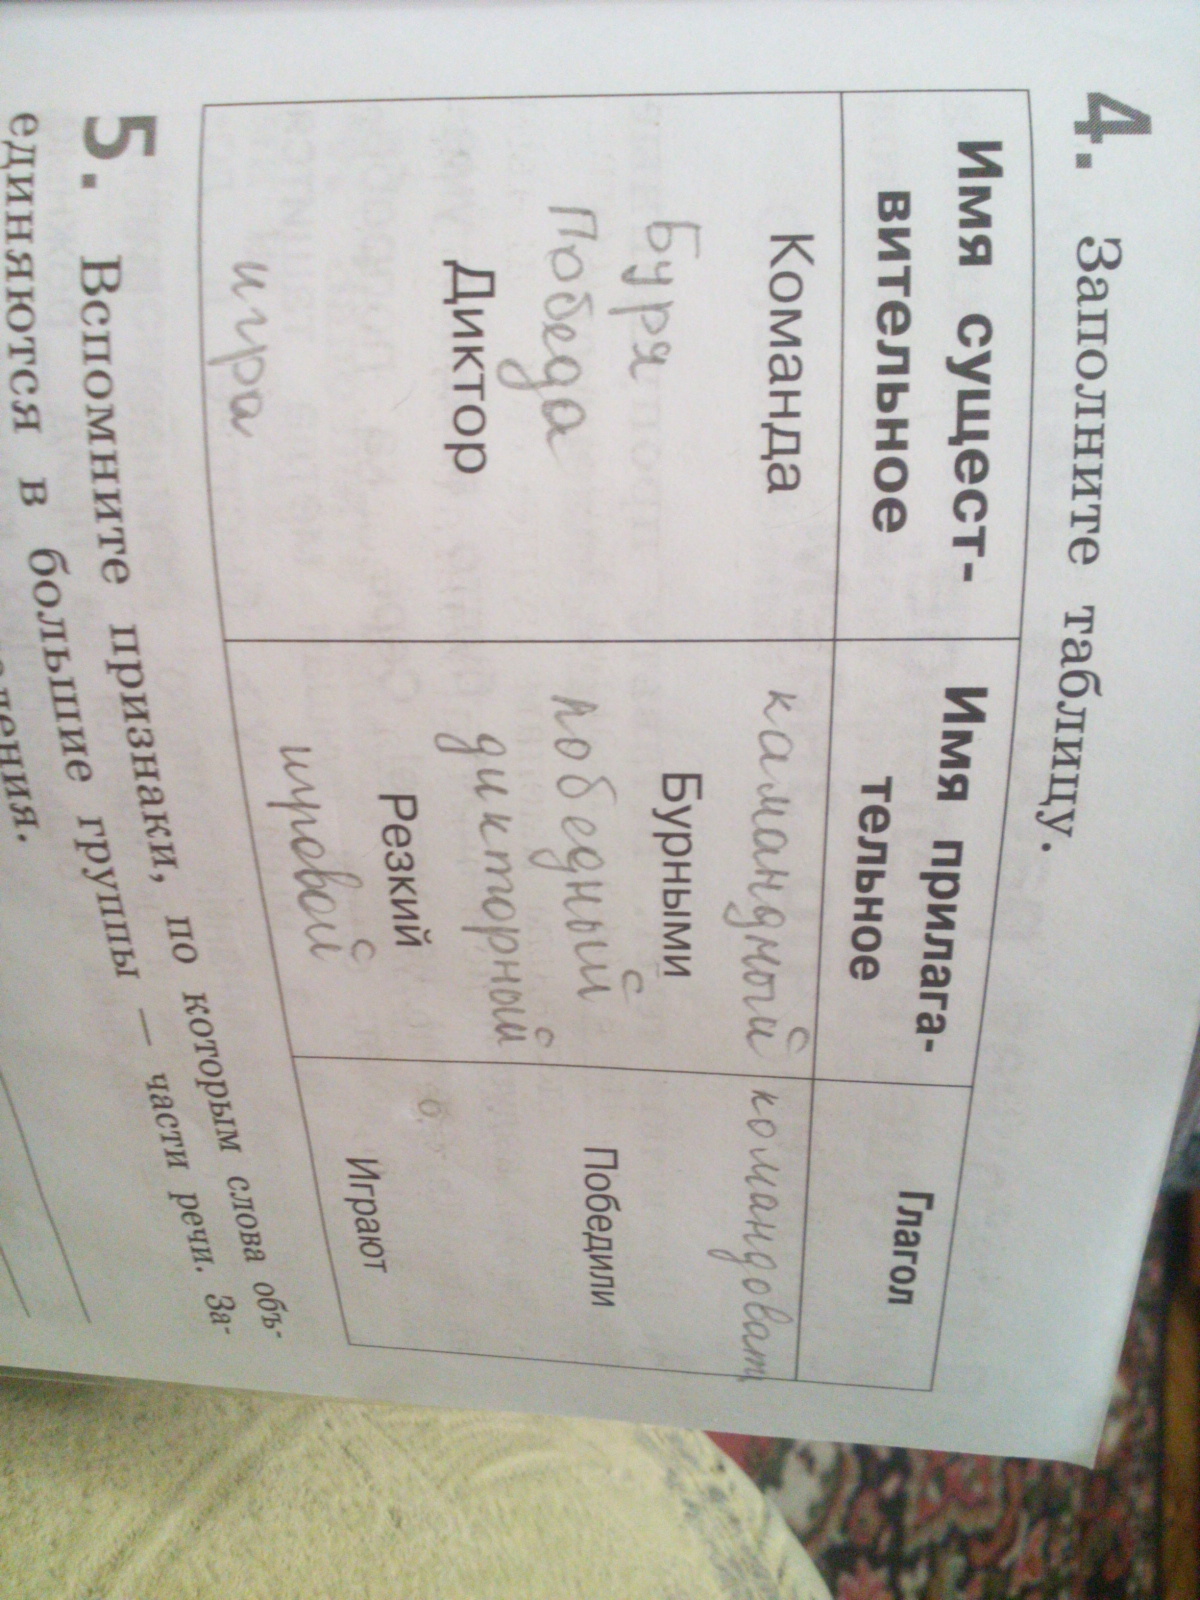 4. Заполните таблицу.
Имя сущест-
вительное
Имя прилага-
тельное
Глагол
Команда
камандный
командовать
Буря
Бурными
Победа
победный
Победили
Диктор
дикторный
Резкий
игра
игровой
Играют
5. Вспомните признаки, по которым слова объ-
единяются в большие группы — части речи. За-